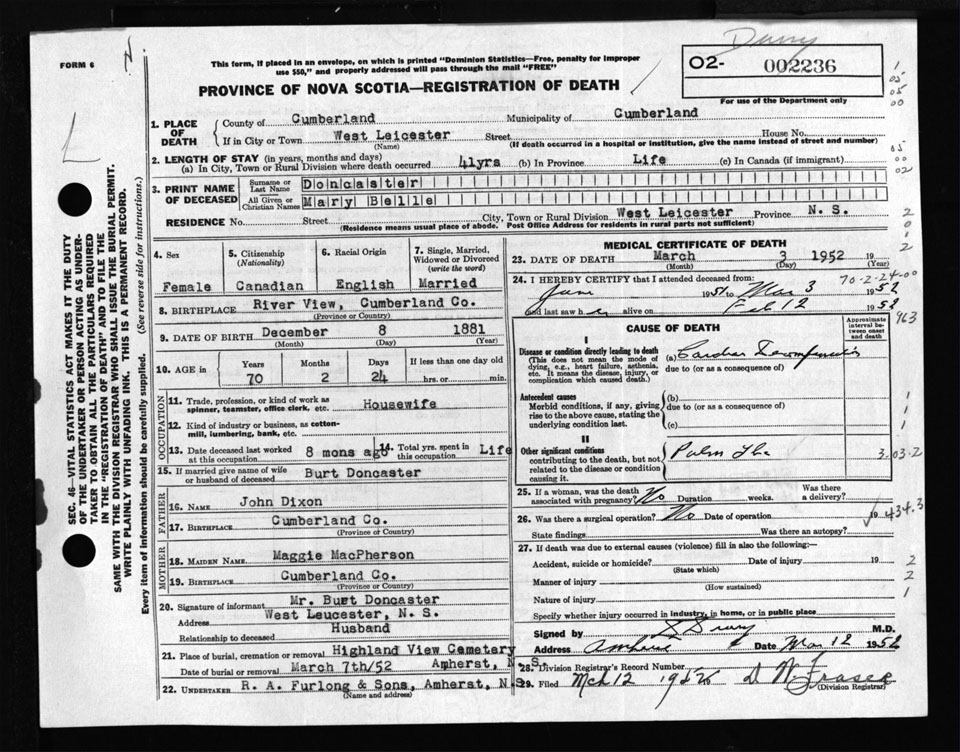 FORM 6
This form, if placed in an envelope, on which is printed "Dominion Statistics—Free, penalty for improper
use $50," and properly addressed will pass through the mail "FREE"
O2- 002236
For use of the Department only
PROVINCE OF NOVA SCOTIA—REGISTRATION OF DEATH
1. PLACE OF DEATH
County of Cumberland Municipality of Cumberland
If in City or Town West Leicester Street House No.
(Name) (If death occurred in a hospital or institution, give the name instead of street and number)
2. LENGTH OF STAY (in years, months and days)
(a) In City, Town or Rural Division where death occurred 41yrs (b) In Province Life (c) In Canada (if immigrant)
3. PRINT NAME OF DECEASED
Surname or Last Name Doncaster
All Given or Christian Names Mary Belle
RESIDENCE No. Street City, Town or Rural Division West Leicester Province N. S.
(Residence means usual place of abode. Post Office Address for residents in rural parts not sufficient)
4. Sex 5. Citizenship (Nationality) 6. Racial Origin 7. Single, Married, Widowed or Divorced (write the word)
Female Canadian English Married
8. BIRTHPLACE River View, Cumberland Co.
(Province or Country)
9. DATE OF BIRTH December 8 1881
(Month) (Day) (Year)
10. AGE in Years Months Days If less than one day old
70 2 24 hrs. or min.
OCCUPATION
11. Trade, profession, or kind of work as spinner, teamster, office clerk, etc. Housewife
12. Kind of industry or business, as cotton-mill, lumbering, bank, etc.
13. Date deceased last worked at this occupation 8 mons ago 14. Total yrs. spent in this occupation Life
15. If married give name of wife or husband of deceased Burt Doncaster
FATHER
16. NAME John Dixon
17. BIRTHPLACE Cumberland Co.
(Province or Country)
MOTHER
18. MAIDEN NAME Maggie MacPherson
19. BIRTHPLACE Cumberland Co.
(Province or Country)
20. Signature of informant Mr. Burt Doncaster
Address West Leucester, N. S.
Relationship to deceased Husband
21. Place of burial, cremation or removal Highland View Cemetary
Date of burial or removal March 7th/52 Amherst, N S.
22. UNDERTAKER R. A. Furlong & Sons, Amherst, N.S.
(Name and address)
MEDICAL CERTIFICATE OF DEATH
23. DATE OF DEATH March 3 1952 19
(Month) (Day) (Year)
24. I HEREBY CERTIFY that I attended deceased from: 70-2-24-00
June 1951 to Mar 3 1952
and last saw h er alive on Feb 12 1952
CAUSE OF DEATH
Approximate interval between onset and death
I
Disease or condition directly leading to death
(This does not mean the mode of dying, e.g., heart failure, asthenia, etc. It means the disease, injury, or complication which caused death.)
(a) Cardiac
due to (or as a consequence of)
Antecedent causes
Morbid conditions, if any, giving rise to the above cause, stating the underlying condition last.
(b)
due to (or as a consequence of)
(c)
II
Other significant conditions
contributing to the death, but not related to the disease or condition causing it.
Pulm Tbc
25. If a woman, was the death associated with pregnancy? No Duration weeks. Was there a delivery?
26. Was there a surgical operation? No Date of operation 19
State findings Was there an autopsy?
27. If death was due to external causes (violence) fill in also the following:—
Accident, suicide or homicide? Date of injury 19
(State which)
Manner of injury
(How sustained)
Nature of injury
Specify whether injury occurred in industry, in home, or in public place
Signed by M.D.
Address Amherst Date Mar 12 1952
28. Division Registrar's Record Number
29. Filed Mch 12 1952 D W Fraser
(Division Registrar)
SEC. 46—VITAL STATISTICS ACT MAKES IT THE DUTY
OF THE UNDERTAKER OR PERSON ACTING AS UNDER-
TAKER TO OBTAIN ALL THE PARTICULARS REQUIRED
IN THE "REGISTRATION OF DEATH" AND TO FILE THE
SAME WITH THE DIVISION REGISTRAR WHO SHALL ISSUE THE BURIAL PERMIT.
WRITE PLAINLY WITH UNFADING INK. THIS IS A PERMANENT RECORD.
Every item of information should be carefully supplied. (See reverse side for instructions.)